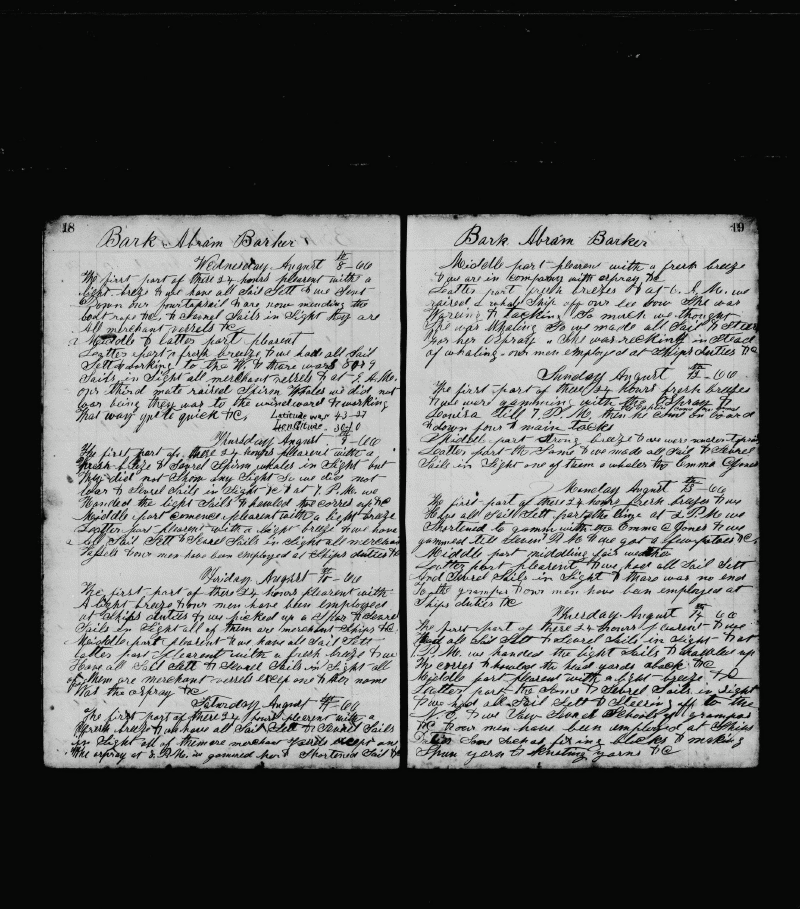 18
Bark Abram Barker
Wednesday August 8th - 66
The first part of these 24 hours plesent with a
light breze & we have all Sail Sett & we Sent
Down our four topsail & are now mending the
bolt rope &C, & Several Sails in Sight they are
All merchant vessels &C
Middle & latter part plesent
Latter part a fresh breeze & we had all Sail
Sett working to the W. & there was 8 or 9
Sails in Sight all merchant vessels & at A. M.
our third mate raised Spirm Whales we did not
lower being they was to the windward & working
that way quick &C,
Latitude was 43-27
Longitude 30-10
Thursday August 9th - 66
The first part of these 24 hours plesent with a
fresh breeze & Several Spirm whales in Sight but
They did not Show any Sight So we did not
lower & Several Sails in Sight &C & at 7. P.M. we
Handed the light Sails & hawled the corses up &C
Middle part Comence plesent with a light breeze
Latter part plesent with a light breeze & we have
all Sail Sett & Several Sails in Sight all merchant
Vessels & our men have been employed at Ships duties &C
Friday August 10th - 66
The first part of these 24 hours plesent with
A light breeze & our men have been employed
at Ships duties & we picked up a Spar & Several
Sails in Sight all of them are merchant Ships &C.
Middle part plesent & we have all Sail Sett
Latter part plesent with a fresh breeze & we
Have all Sail Sett & Several Sails in Sight all
of them are merchant vessels except one & her name
Was the Ospray &C
Saturday August 11th - 66
The first part of these 24 hours plesent with a
fresh breeze & we have all Sail Sett & Several Sails
in Sight all of them are merchant vessels except one
the ospray at P.M. we gammed her & Shortened Sail &C
19
Bark Abram Barker
Middle part plesent with a fresh breeze
& we are in Company with ospray &C
Latter part fresh breezes & at 6. A.M. we
raised a whale Ship off our lee bow She was
Waring & tacking So much we thought
She was Whaling So we made all Sail & Steer
for her & Spray She was recking in Stead
of whaling. our men employed at Ships duties &C
Sunday August 12th - 66
The first part of these 24 hours fresh breezes
& we were gamming with the Spray &
Louisa till 7. P.M. then he Come on board
& down four & main tacks
Middle part Strong breeze & we were under topsails
Latter part the Same & we made all Sail & Several
Sails in Sight one of them a whaler the Emma C Jones
Munday August 13th - 66
The first part of these 24 hours fresh breeze & we
Have all Sail Sett part of the time at P.M. we
Shortened & gamm with the Emma C Jones & we
gammed till Seven P.M. & we got a few potatoes &C,
Middle part middling fair weather
Latter part plesent & we had all Sail Sett
And Several Sails in Sight & there was no end
To the grampas & our men have been employed at
Ships duties &C
Thursday August 14th 66
The first part of these 24 hours plesent & we
Had all Sail Sett & Several Sails in Sight & at
P. M. we handed the light Sails & hawled up
The corses & hawled the head yards aback &C
Middle part plesent with a light breeze. &C
Latter part the Same & Several Sails in Sight
& we had all Sail Sett & Steering off to the
S. E. & we Saw Several Schools of grampas
&C & our men have been employed at Ships
Duties Some Such as fixing blocks & making
Spun yarn & knotting yarns &C